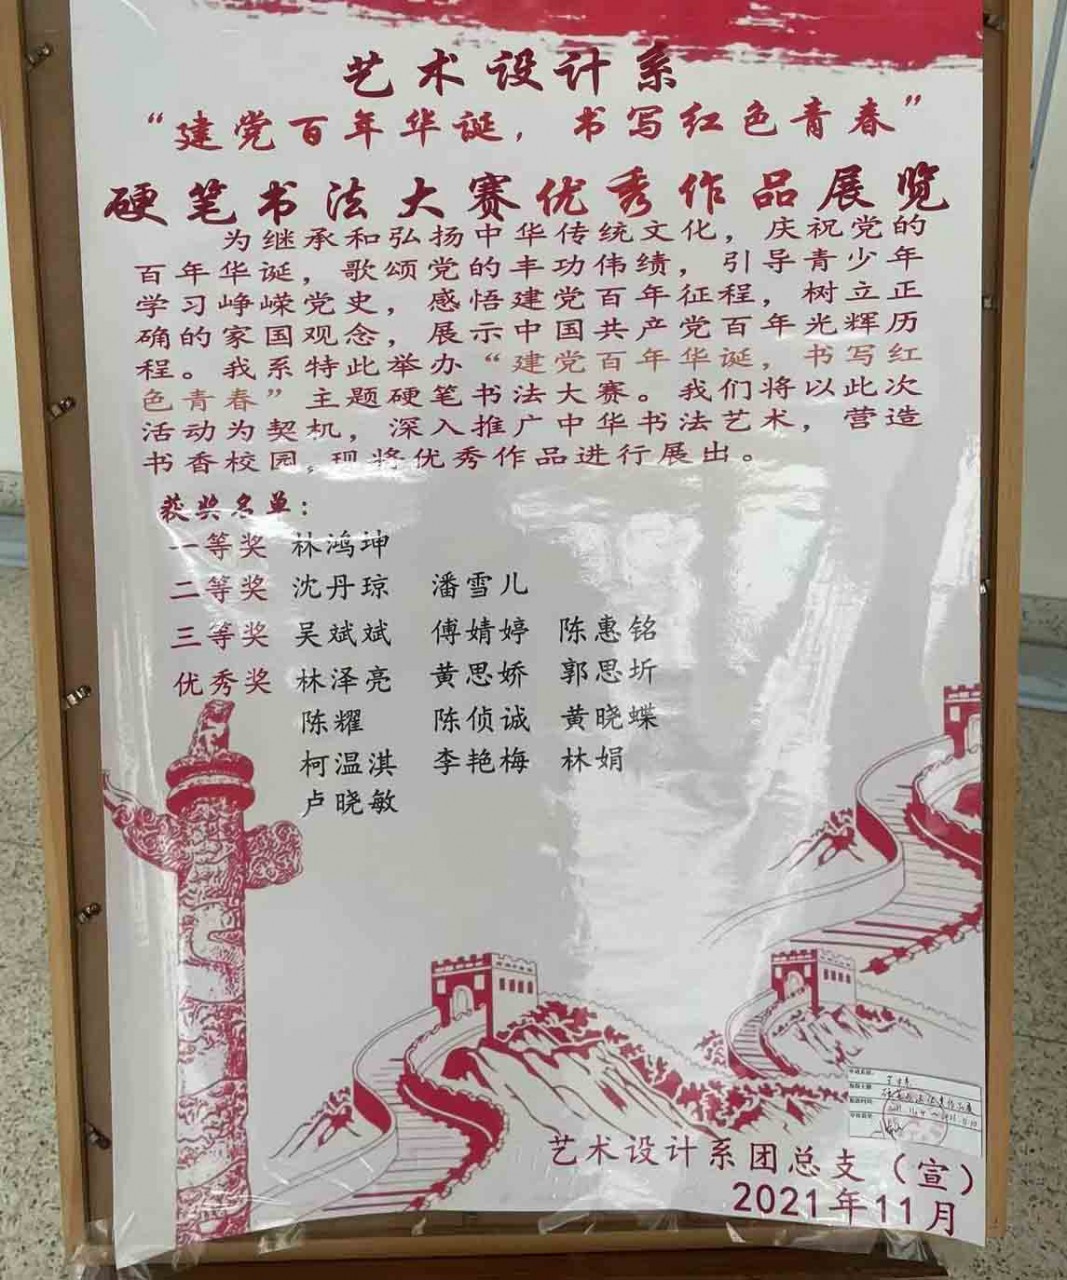 艺术设计系
“建党百年华诞，书写红色青春”
硬笔书法大赛优秀作品展览
为继承和弘扬中华传统文化，庆祝党的
百年华诞，歌颂党的丰功伟绩，引导青少年
学习峥嵘党史，感悟建党百年征程，树立正
确的家国观念，展示中国共产党百年光辉历
程。我系特此举办“建党百年华诞，书写红
色青春”主题硬笔书法大赛。我们将以此次
活动为契机，深入推广中华书法艺术，营造
书香校园，现将优秀作品进行展出。
获奖名单：
一等奖 林鸿坤
二等奖 沈丹琼 潘雪儿
三等奖 吴斌斌 傅婧婷 陈惠铭
优秀奖 林泽亮 黄思娇 郭思圻
陈耀 陈侦诚 黄晓蝶
柯温淇 李艳梅 林娟
卢晓敏
艺术设计系团总支（宣）
2021年11月